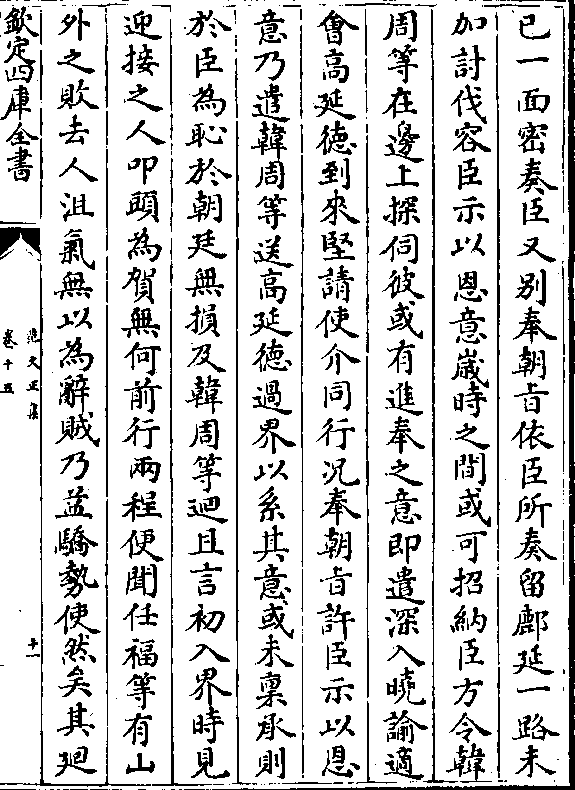 已一面密奏臣又别奉朝旨依臣所奏留鄜延一路未
加討伐容臣示以恩意嵗時之間或可招納臣方令韓
周等在邊上探伺彼或有進奉之意即遣深入曉諭適
會高延德到來堅請使介同行况奉朝旨許臣示以恩
意乃遣韓周等送高延德過界以系其意或未禀承則
於臣為恥於朝廷無損及韓周等迴且言初入界時見
迎接之人叩頭為賀無何前行兩程便聞任福等有山
外之敗去人沮氣無以為辭賊乃益驕勢使然矣其廻
欽定四庫全書
范文正集
卷十五
十一